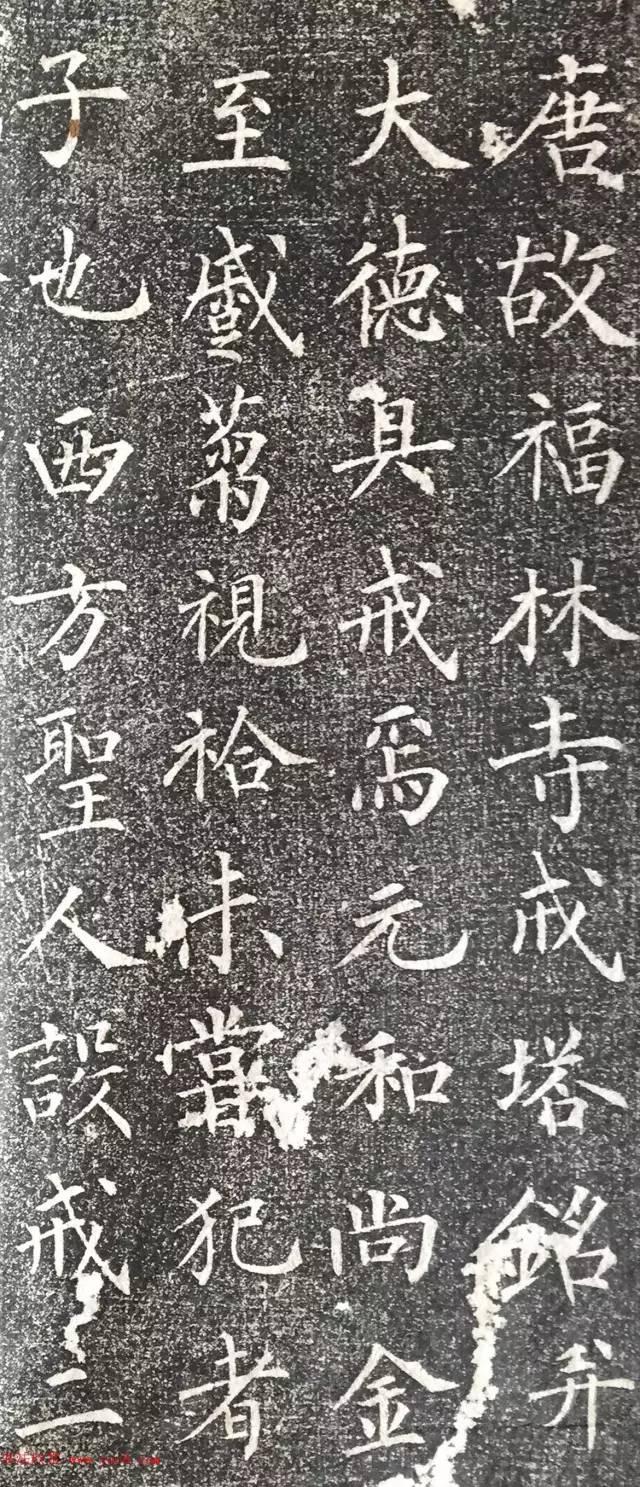 唐故福林寺戒塔銘并
大德具戒焉元和尚金
至戱蒭視袷未嘗犯者
子也西方聖人設戒二